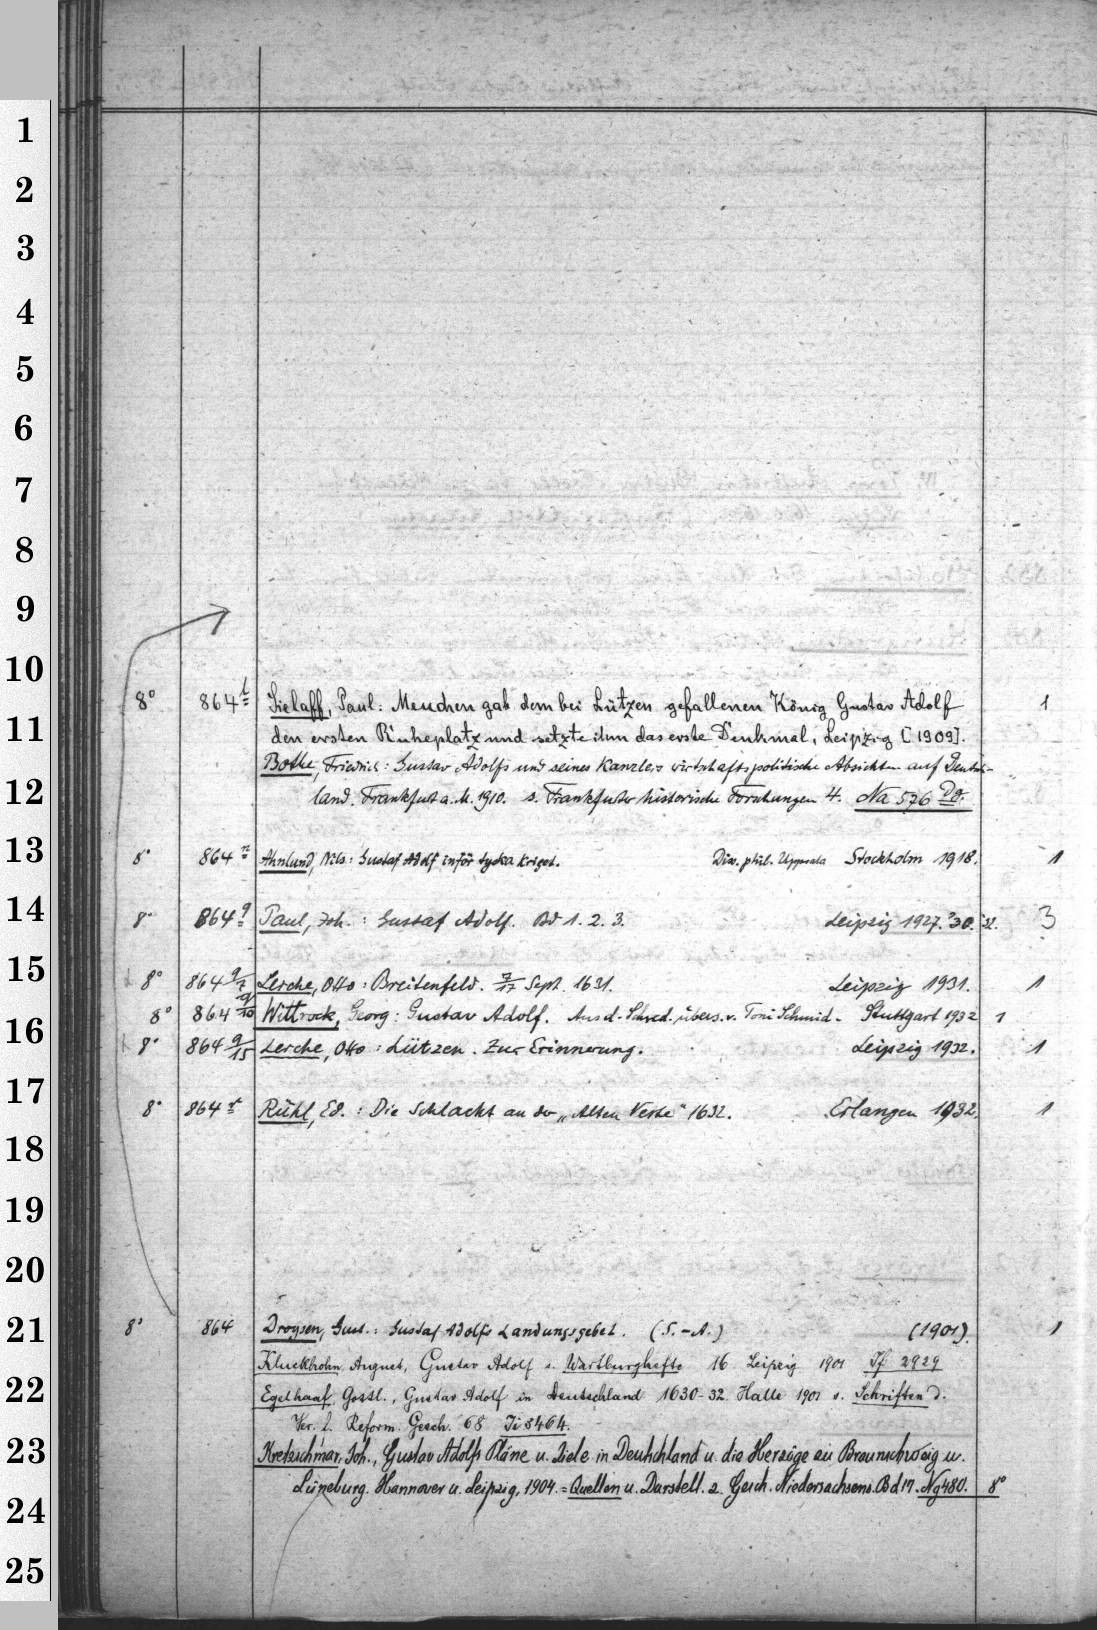 1
2
3
4
5
6
7
8
9
10
8° 864 l Sielaff, Paul: Meuchen gab dem bei Lützen gefallenen König Gustav Adolf 1
11
den ersten Ruheplatz und setzte ihm das erste Denkmal, Leipzig [1909].
Bothe, Friedrich: Gustav Adolfs und seines Kanzlers wirtschaftspolitische Absichten auf Deutsch-
12
land. Frankfurt a. M. 1910. s. Frankfurter historische Forschungen 4. Na 576
13
8° 864 n Ahnlund, Nils: Gustaf Adolf inför tyska kriget. Diss. phil. Uppsala Stockholm 1918. 1
14
8° 864 q Paul, Joh.: Gustaf Adolf. Bd 1. 2. 3. Leipzig 1927. '30. '32. 3
15
8° 864 q/7 Lerche, Otto: Breitenfeld. 7/17 Sept. 1631. Leipzig 1931. 1
8° 864 q/10 Wittrock, Georg: Gustav Adolf. Aus d. Schwed. übers. v. Toni Schmid. Stuttgart 1932 1
16
8° 864 q/15 Lerche, Otto: Lützen. Zur Erinnerung. Leipzig 1932. 1
17
8° 864 r Rühl, Ed.: Die Schlacht an der „Alten Veste" 1632. Erlangen 1932. 1
18
19
20
21
8° 864 Droysen, Gust.: Gustaf Adolfs Landungsgebet. (S.-A.) (1901). 1
Kluckhohn, August, Gustav Adolf s. Wartburghefte 16 Leipzig 1901 If 2929
22
Egelhaaf, Gottl., Gustav Adolf in Deutschland 1630-32. Halle 1901 s. Schriften d.
Ver. f. Reform. Gesch. 68 Ji 3464.
23
Kretzschmar, Joh., Gustav Adolfs Pläne u. Ziele in Deutschland u. die Herzöge zu Braunschweig u.
24
Lüneburg. Hannover u. Leipzig, 1904. = Quellen u. Darstell. z. Gesch. Niedersachsens. Bd 17. Ng 480. 8°
25